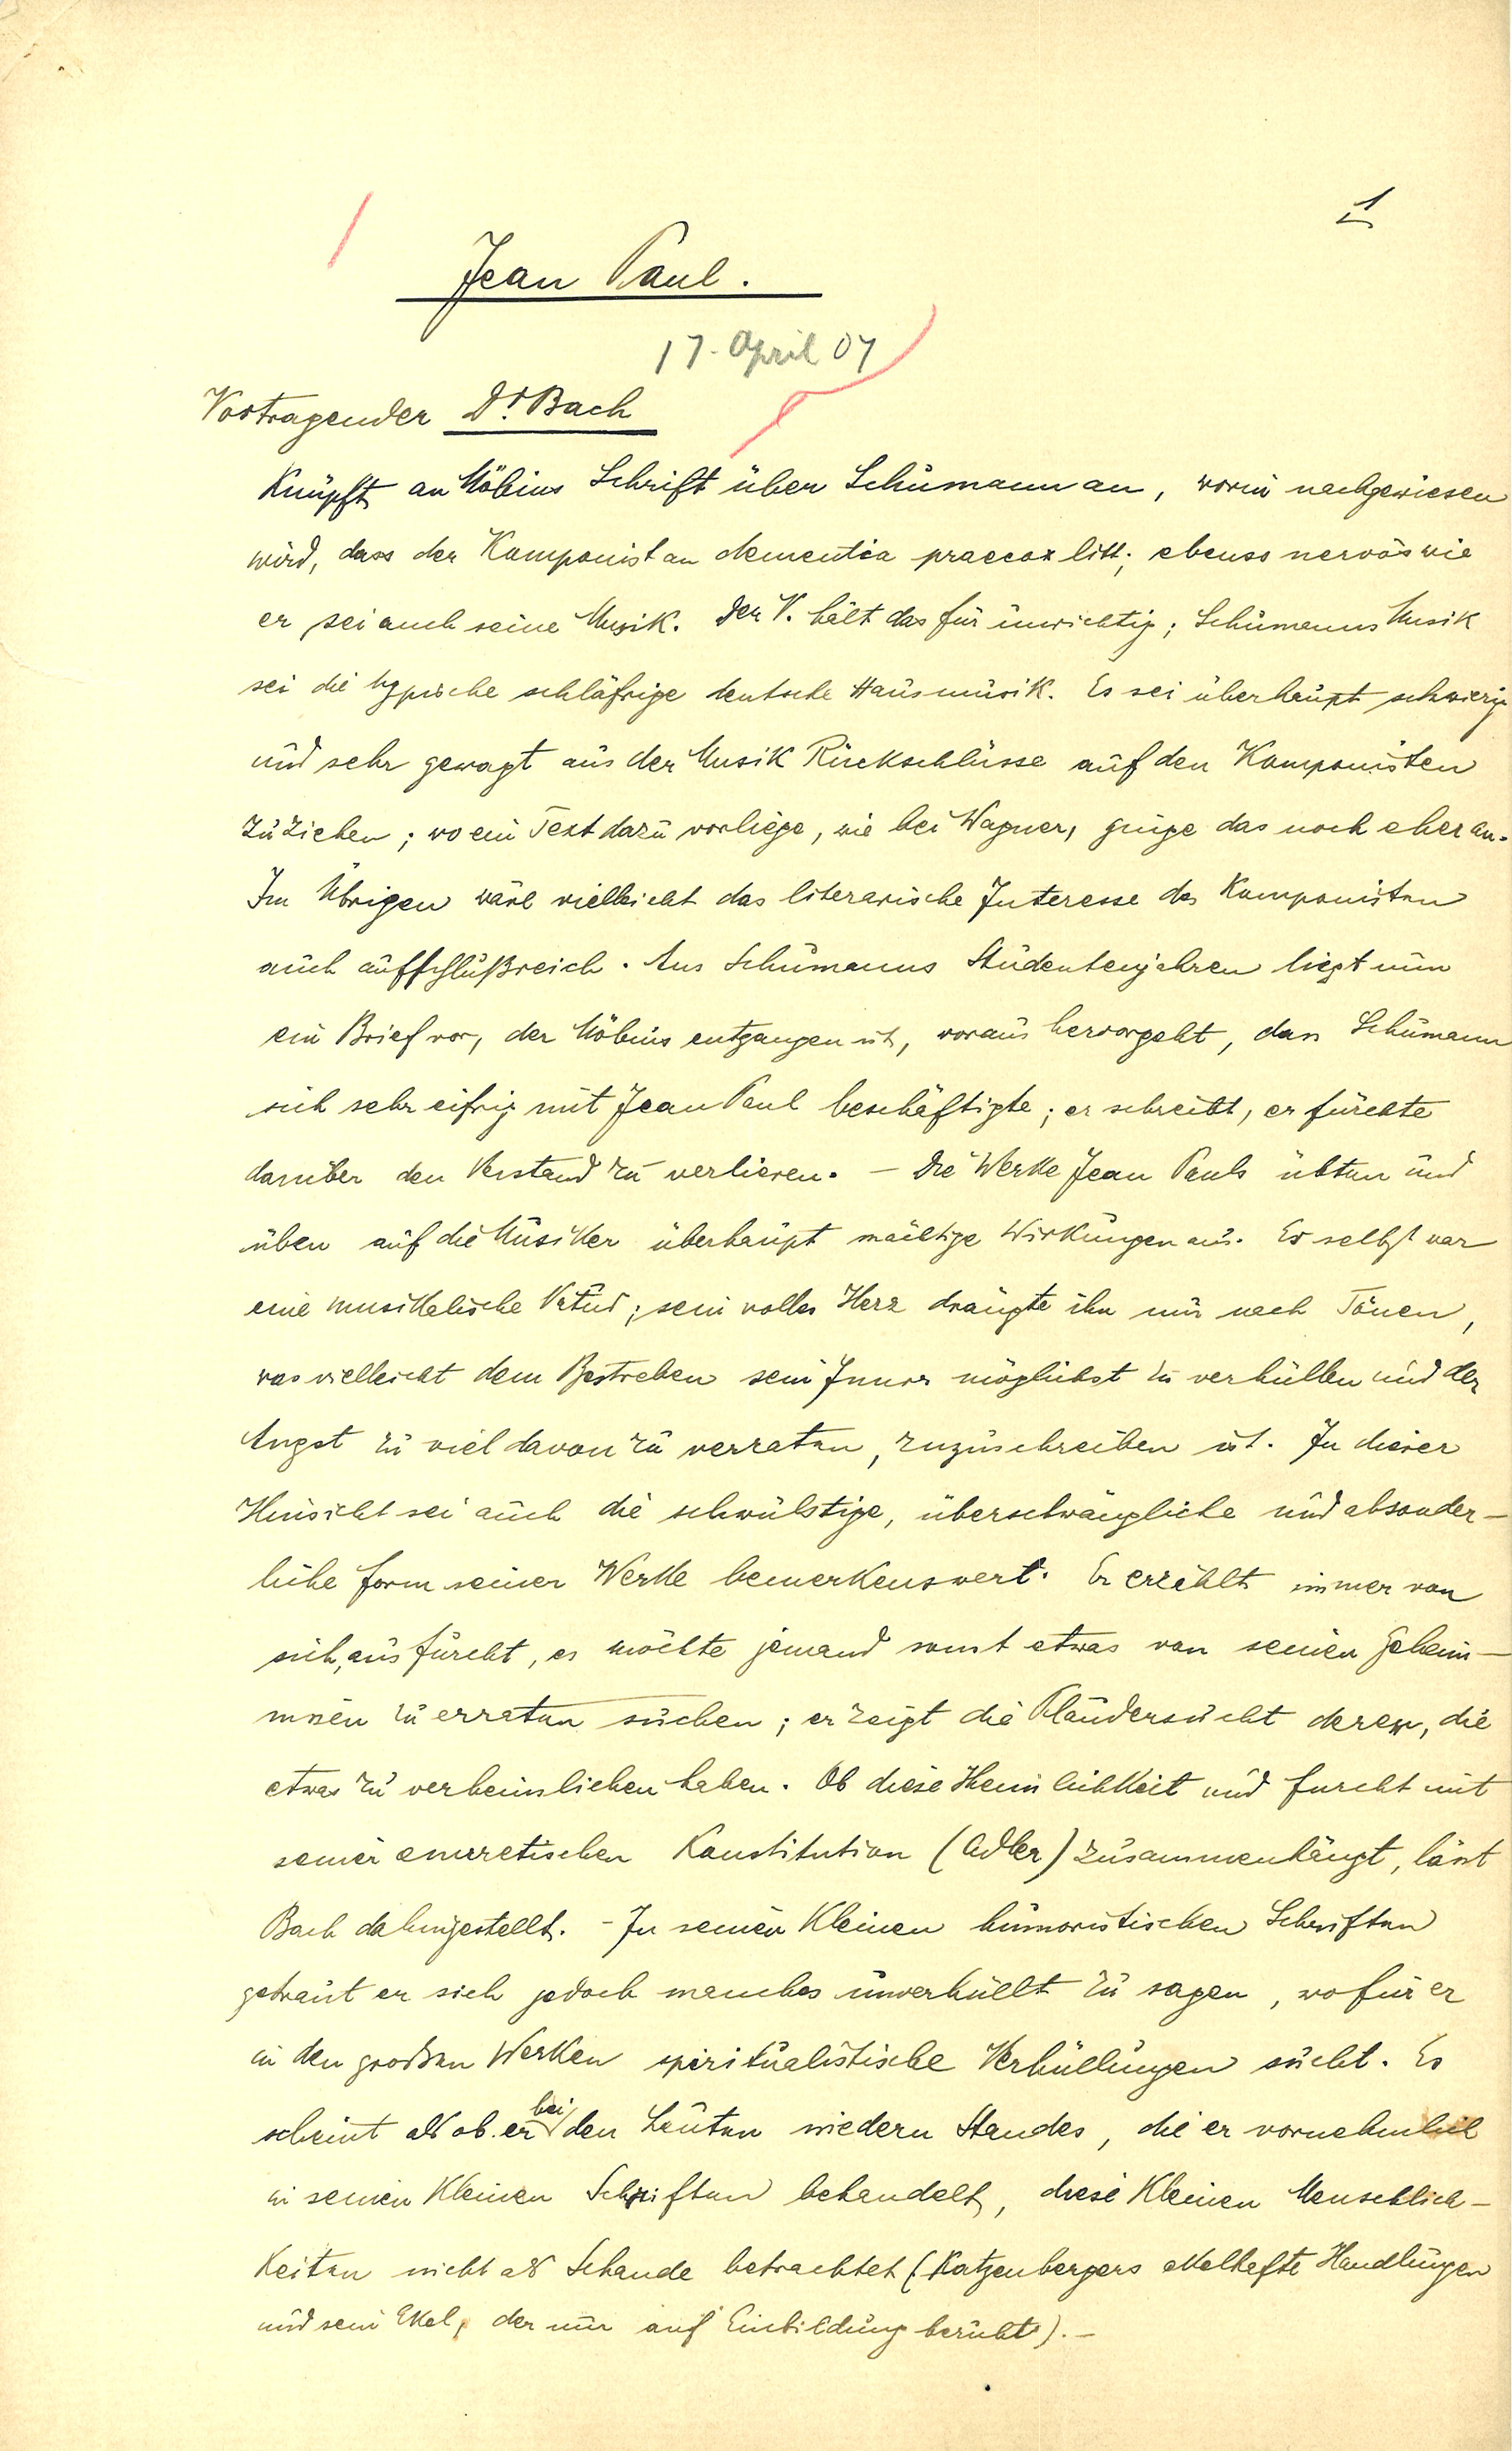 1
Jean Paul.
17. April 07
Vortragender Dr. Bach
Knüpft an Möbius Schrift über Schumann an, worin nachgewiesen
wird, dass der Komponist an dementia praecox litt; ebenso nervös wie
er sei auch seine Musik. Der V. hält das für unrichtig; Schumanns Musik
sei die typische schläfrige deutsche Hausmusik. Es sei überhaupt schwierig
und sehr gewagt aus der Musik Rückschlüsse auf den Komponisten
zu ziehen; wo ein Text dazu vorliege, wie bei Wagner, ginge das noch eher an.
Im Übrigen wäre vielleicht das literarische Interesse des Komponisten
auch aufschlußreich. Aus Schumanns Studentenjahren liegt nun
ein Brief vor, der Möbius entgangen ist, woraus hervorgeht, dass Schumann
sich sehr eifrig mit Jean Paul beschäftigte; er schreibt, er fürchte
darüber den Verstand zu verlieren. – Die Werke Jean Pauls übten und
üben auf die Musiker überhaupt mächtige Wirkungen aus. Er selbst war
eine musikalische Natur; sein volles Herz drängte ihn nur nach Tönen,
was vielleicht dem Bestreben sein Inneres möglichst zu verhüllen und der
Angst zu viel davon zu verraten, zuzuschreiben ist. In dieser
Hinsicht sei auch die schwülstige, überschwängliche und absonder-
liche Form seiner Werke bemerkenswert. Er erzählt immer von
sich, aus Furcht, es möchte jemand sonst etwas von seinen Geheim-
nissen zu erraten suchen; er zeigt die Plaudersucht derer, die
etwas zu verheimlichen haben. Ob diese Heimlichkeit und Furcht mit
seiner enuretischen Konstitution (Adler) zusammenhängt, lässt
Bach dahingestellt. – In seinen kleinen humoristischen Schriften
getraut er sich jedoch manches unverhüllt zu sagen, wofür er
in den großen Werken spiritualistische Verhüllungen sucht. Es
scheint als ob er bei den Leuten niedern Standes, die er vornehmlich
in seinen kleinen Schriften behandelt, diese kleinen Menschlich-
keiten nicht als Schande betrachtet (Katzenbergers ekelhafte Handlungen
und sein Ekel, der nur auf Einbildung beruht). –